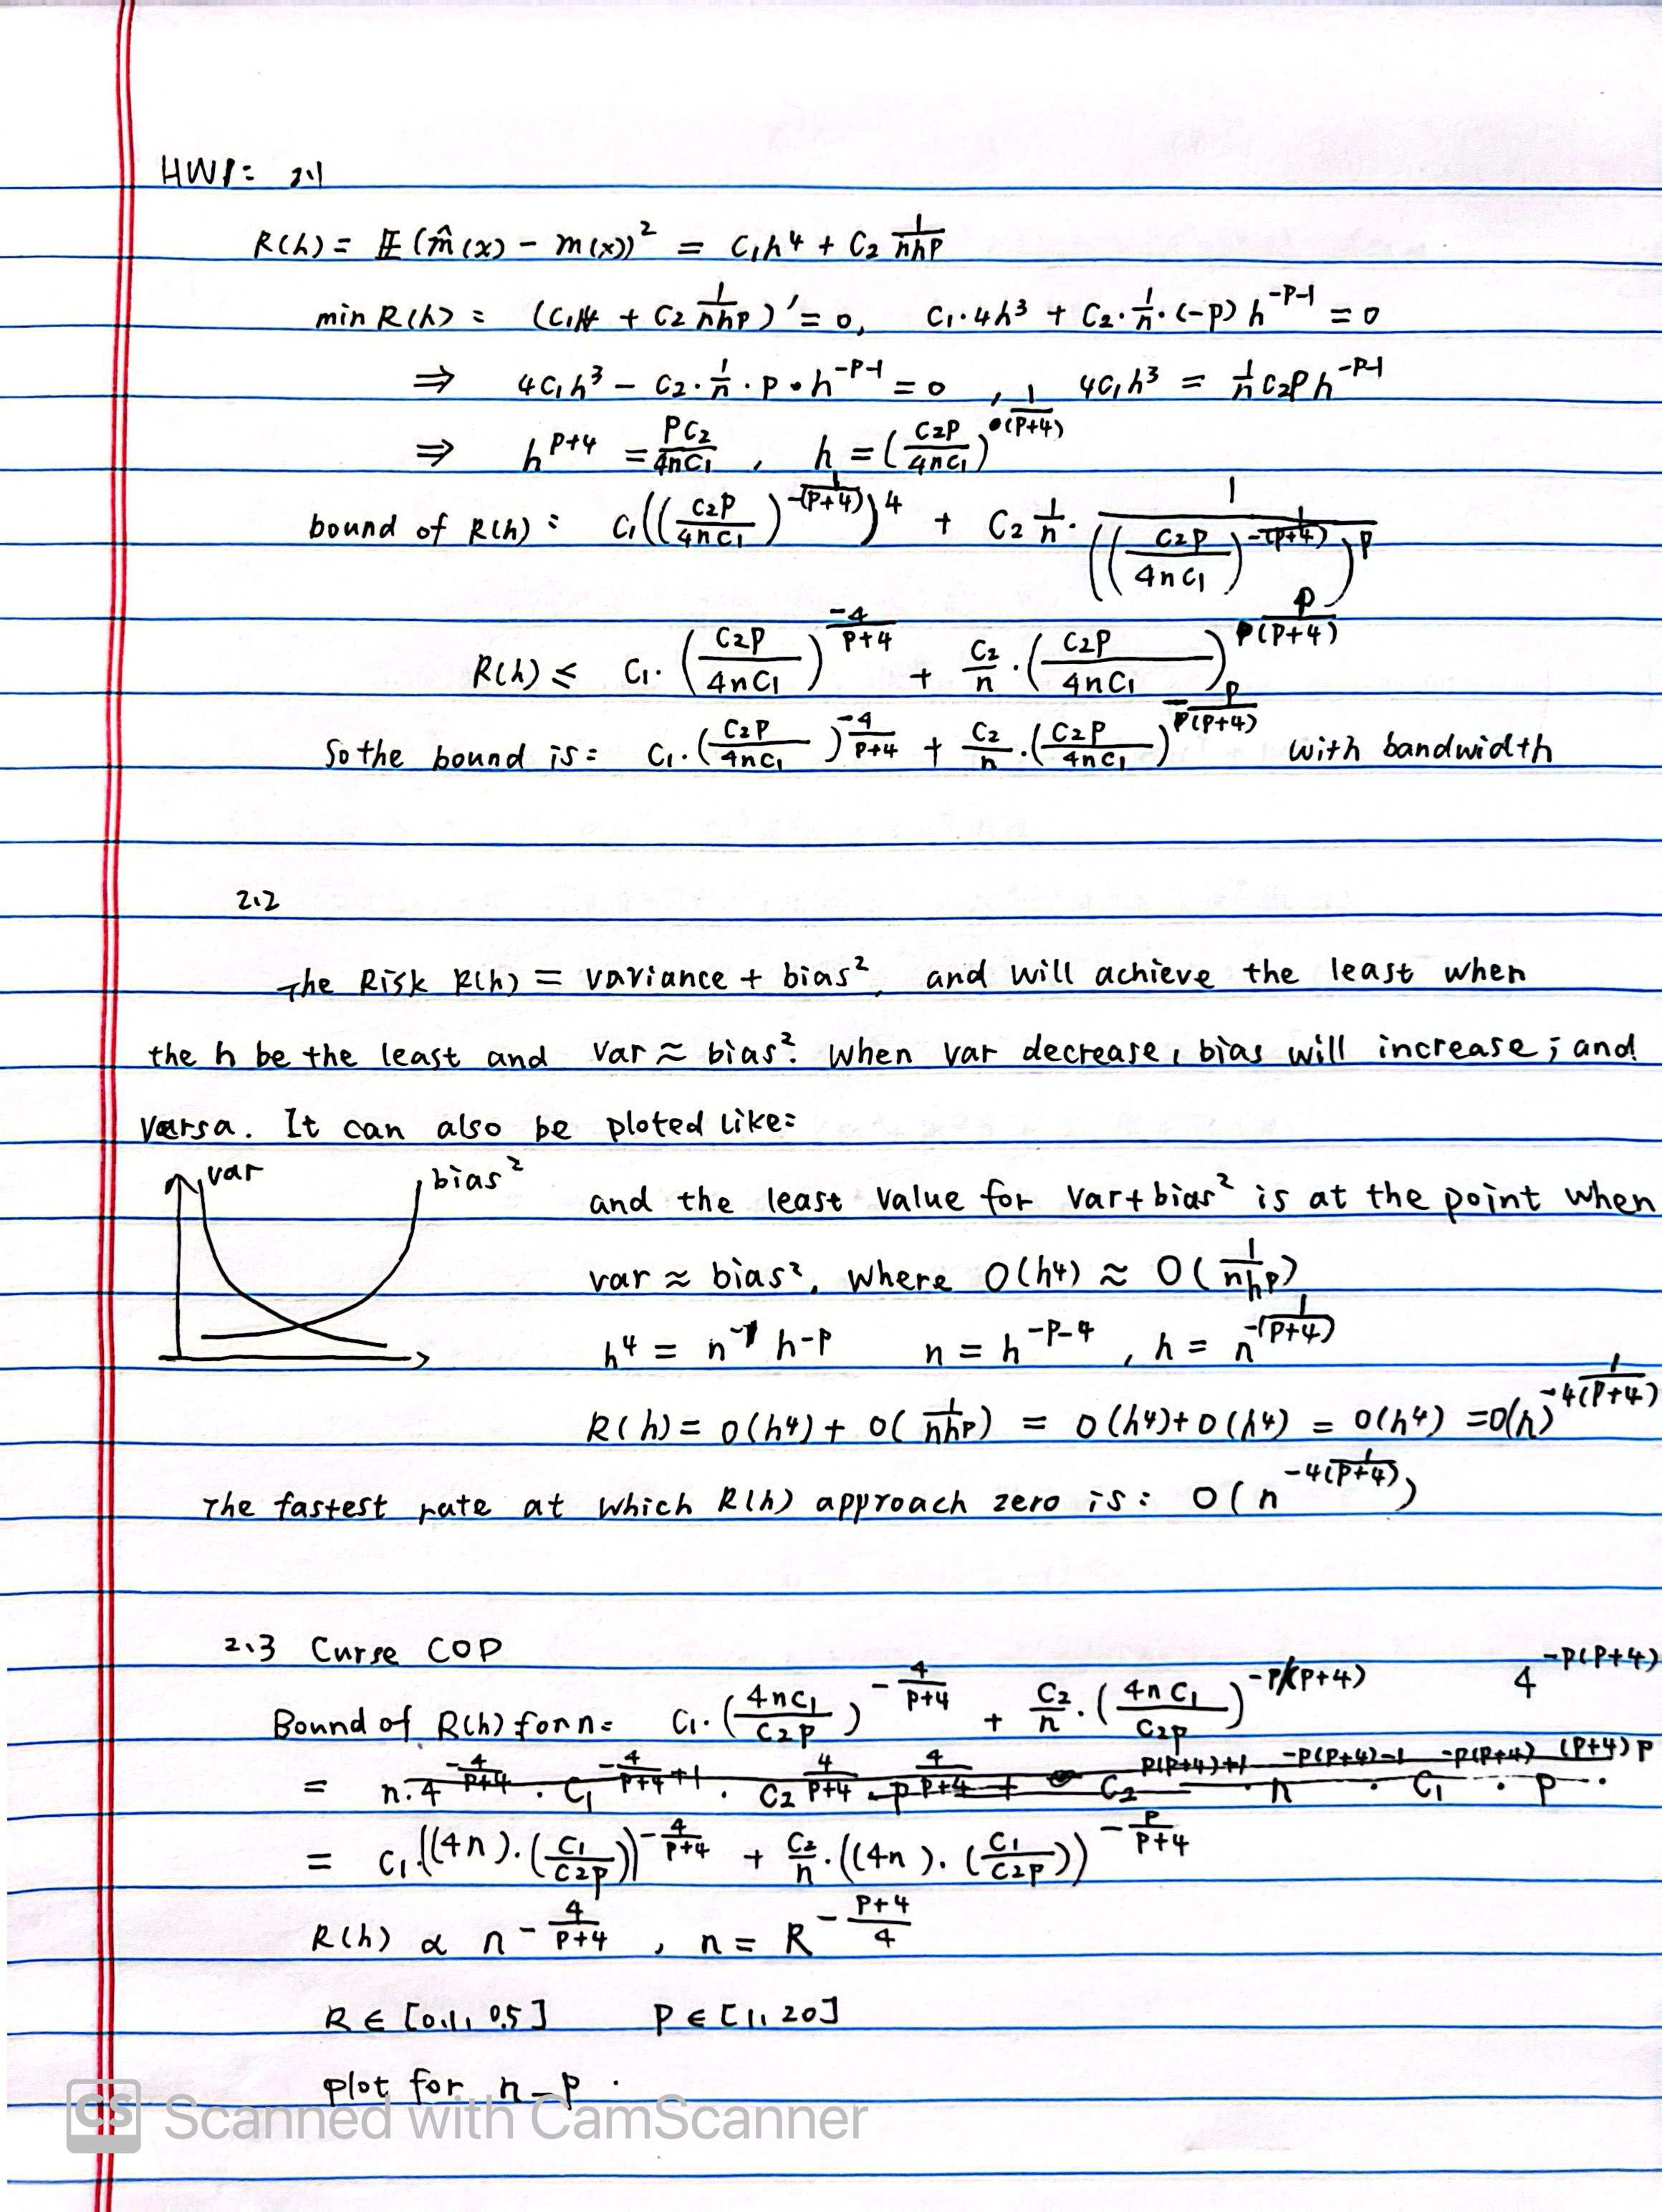 HW1: 2.1
R(h) = 𝔼(m̂(x) - m(x))² = C₁h⁴ + C₂ 1/(nh^p)
min R(h) = (C₁h⁴ + C₂ 1/(nh^p))' = 0, C₁·4h³ + C₂·1/n·(-p)h^(-p-1) = 0
⇒ 4C₁h³ - C₂·1/n·p·h^(-p-1) = 0, 4C₁h³ = 1/n C₂p h^(-p-1)
⇒ h^(p+4) = pC₂/(4nC₁), h = (C₂p/(4nC₁))^(1/(p+4))
bound of R(h): C₁((C₂p/(4nC₁))^(-1/(p+4)))⁴ + C₂ 1/n · 1/((C₂p/(4nC₁))^(-1/(p+4)))^p
R(h) ≤ C₁·(C₂p/(4nC₁))^(-4/(p+4)) + C₂/n·(C₂p/(4nC₁))^(p/(p+4))
So the bound is: C₁·(C₂p/(4nC₁))^(-4/(p+4)) + C₂/n·(C₂p/(4nC₁))^(-p/(p+4)) with bandwidth
2.2
The Risk R(h) = variance + bias², and will achieve the least when
the h be the least and var ≈ bias². When var decrease, bias will increase; and
versa. It can also be ploted like:
var bias²
and the least value for var+bias² is at the point when
var ≈ bias², where O(h⁴) ≈ O(1/(nh^p))
h⁴ = n^(-1) h^(-p) n = h^(-p-4), h = n^(-1/(p+4))
R(h) = O(h⁴) + O(1/(nh^p)) = O(h⁴)+O(h⁴) = O(h⁴) = O(n)^(-4(1/(p+4)))
The fastest rate at which R(h) approach zero is: O(n^(-4(1/(p+4))))
2.3 Curse COD
Bound of R(h) for n= C₁·(4nC₁/(C₂p))^(-4/(p+4)) + C₂/n·(4nC₁/(C₂p))^(-p/(p+4)) 4^(-p(p+4))
= n·4^(-4/(p+4))·C₁^(-4/(p+4)+1)·C₂^(4/(p+4))·p^(4/(p+4)) + C₂^(p(p+4)+1)·n^(-p(p+4)-1)·C₁^(-p(p+4))·p^((p+4)p)·
= C₁·((4n)·(C₁/(C₂p)))^(-4/(p+4)) + C₂/n·((4n)·(C₁/(C₂p)))^(-p/(p+4))
R(h) ∝ n^(-4/(p+4)), n = R^(-(p+4)/4)
R ∈ [0.1, 0.5] p ∈ [1, 20]
plot for n-p.
CS Scanned with CamScanner